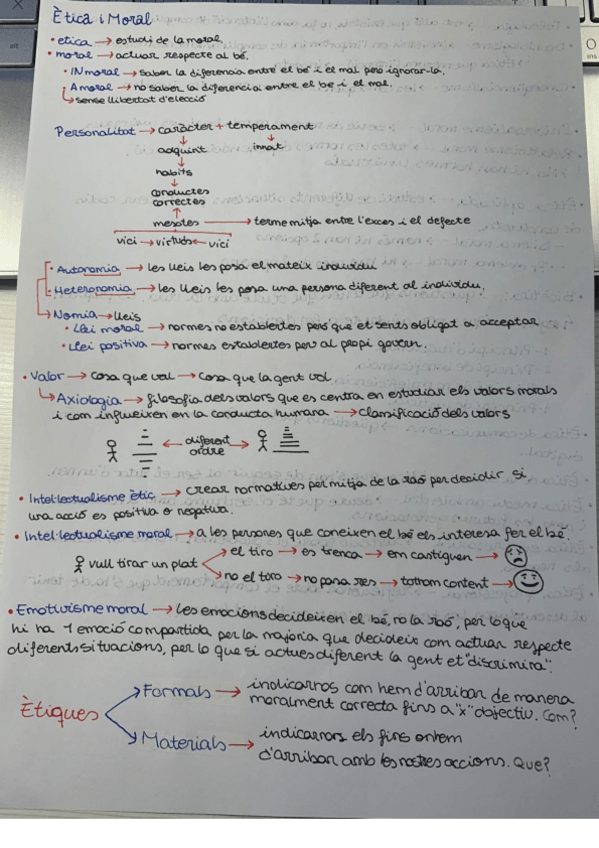 Ètica i Moral
• etica → estudi de la moral.
• moral → actuar respecte al bé.
• INmoral → saber la diferencia entre el bé i el mal però ignorar-la.
Amoral → no saber la diferencia entre el be i el mal.
↳ sense llibertat d'elecció
Personalitat → caràcter + temperament
adquirit innat
habits
conductes
correctes
mesotes → terme mitja entre l'exces i el defecte
vici → virtuds ← vici
• Autonomia → les lleis les posa el mateix individu
• Heteronomia → les lleis les posa una persona diferent al individu.
Nomia → lleis
• Llei moral → normes no establertes però que et sents obligat a acceptar
• Llei positiva → normes establertes per al propi govern.
• Valor → cosa que val → cosa que la gent vol
↳ Axiologia → filosofia dels valors que es centra en estudiar els valors morals
i com influeixen en la conducta humana → classificació dels valors
← diferent →
ordre
• Intel·lectualisme ètic → crear normatives per mitja de la raó per decidir si
una acció es positiva o negativa.
• Intel·lectualisme moral → a les persones que coneixen el bé els interesa fer el bé.
vull tirar un plat
el tiro → es trenca → em castiguen →
no el toro → no pasa res → tothom content →
• Emotivisme moral → Les emocions decideixen el bé, no la raó; per lo que
hi ha 1 emoció compartida per la majoria que decideix com actuar respecte
diferents situacions, per lo que si actues diferent la gent et "discrimira".
Ètiques
Formals → indicarnos com hem d'arribar de manera
moralment correcta fins a "x" objectiu. Com?
Materials → indicarnos els fins on hem
d'arribar amb les nostres accions. Que?